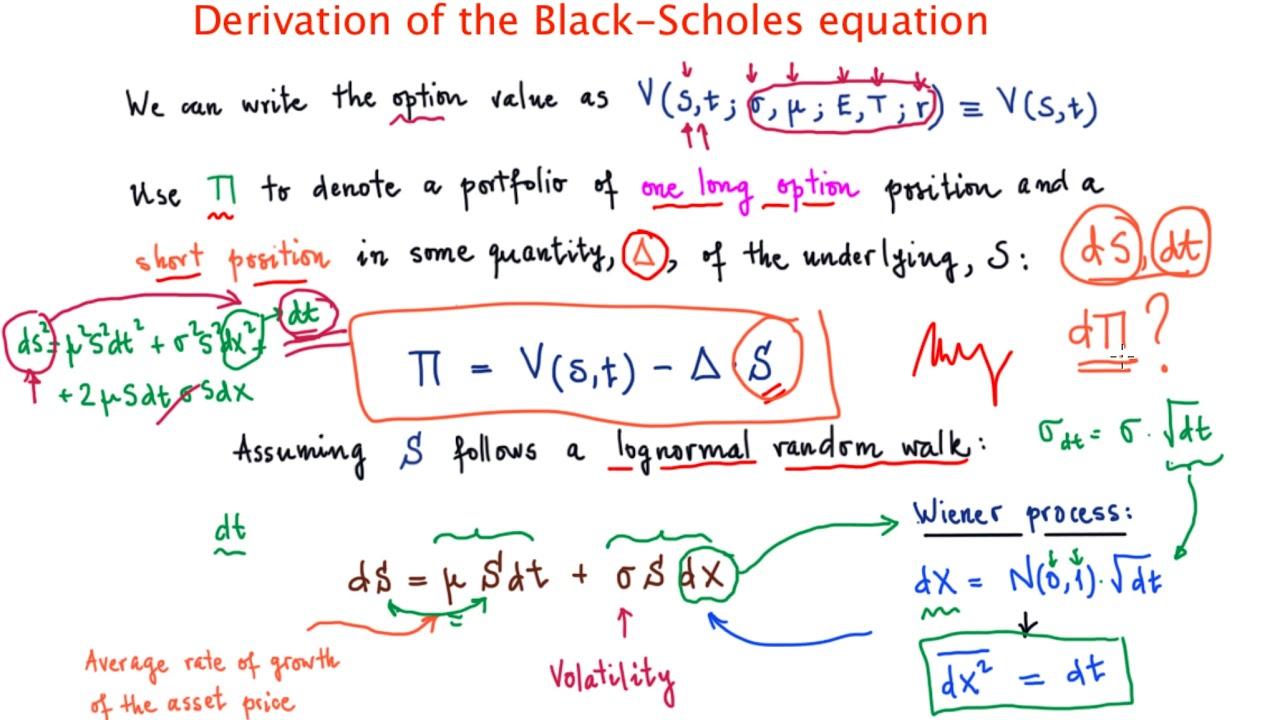 Derivation of the Black-Scholes equation
We can write the option value as V(S,t; σ, μ; E, T; r) ≡ V(S,t)
Use Π to denote a portfolio of one long option position and a
short position in some quantity, Δ, of the underlying, S:
dS, dt
dS² = μ²S²dt² + σ²S²dX² + → dt
+ 2μSdt σSdX
Π = V(S,t) - Δ S
dΠ?
σdt = σ · √dt
Assuming S follows a lognormal random walk:
dt
Wiener process:
dS = μ S dt + σ S dX
dX = N(0,1) · √dt
Average rate of growth
of the asset price
Volatility
dX² = dt